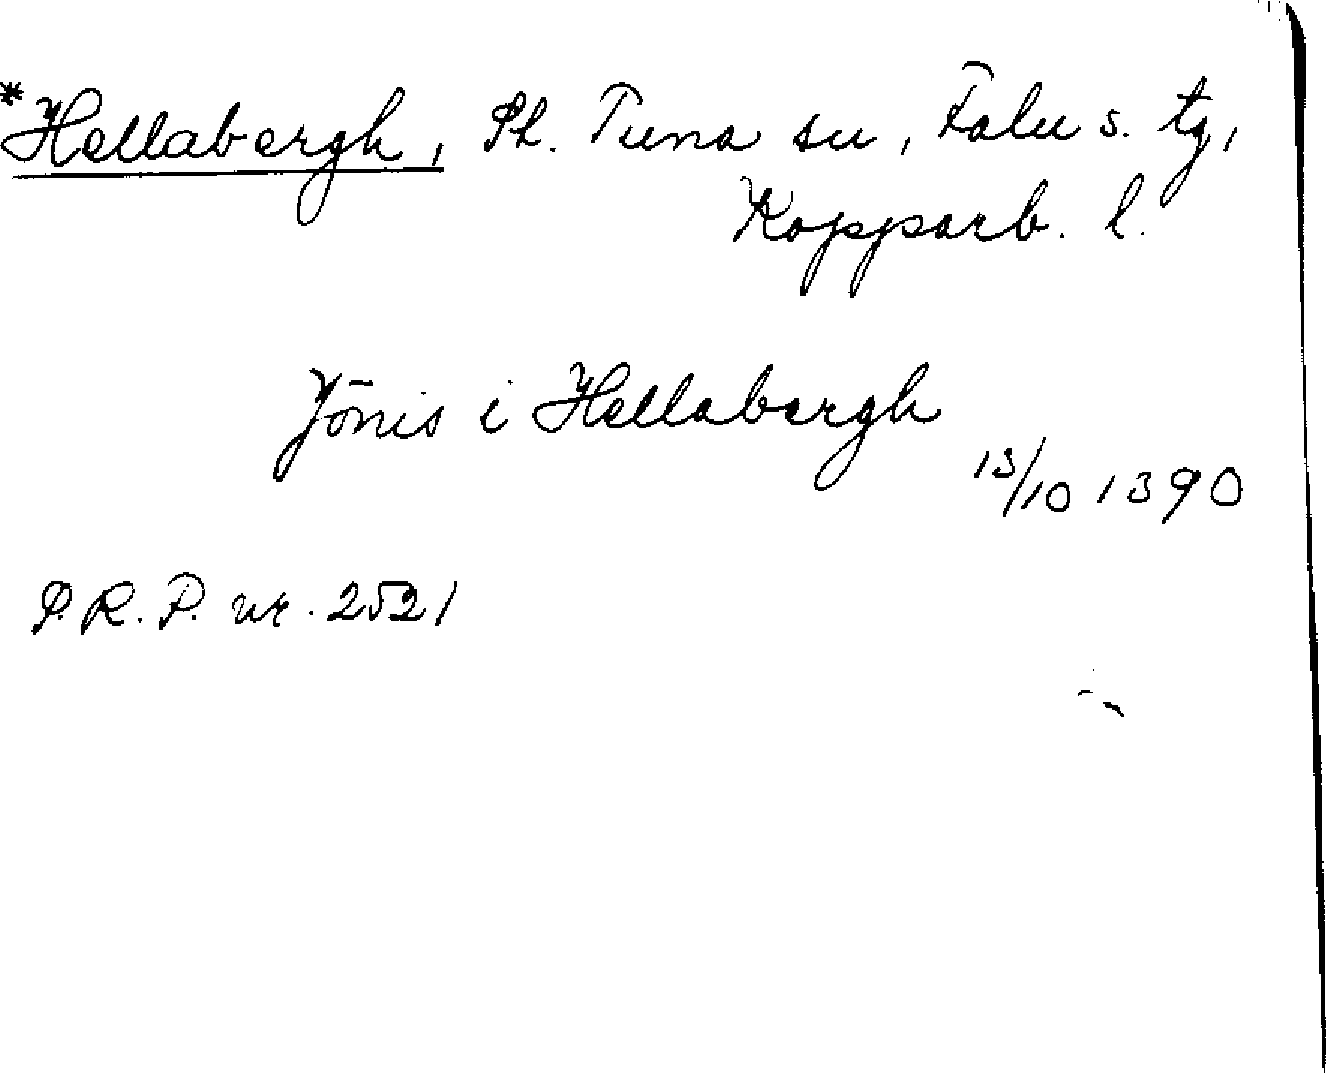 *Hellabergh, St. Tuna sn, Falu s. tg,
Kopparb. l.
Jōnis i Hellabergh
13/10 1390
S.R.P. nr. 2521